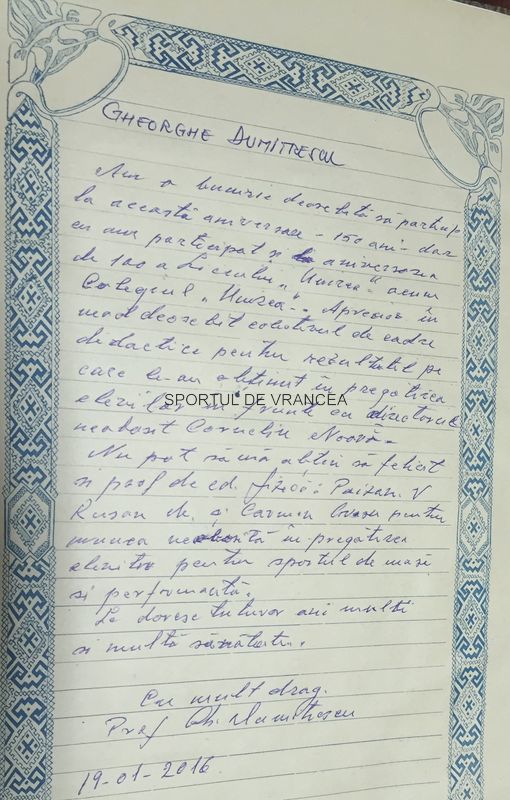 GHEORGHE DUMITRESCU
Am o bucurie deosebită să particip
la această aniversare - 150 ani - dar
eu am participat și la aniversarea
de 100 a Liceului „Unirea" acum
Colegiul „Unirea". Apreciez în
mod deosebit colectivul de cadre
didactice pentru rezultatul pe
care le-au obținut în pregătirea
elevilor în frunte cu directorul
neobosit Corneliu
SPORTUL DE VRANCEA
Nu pot să mă abțin să felicit
și prof de ed. fizică: Paisan. V
Rusan și Carmen pentru
munca neobosită în pregătirea
elevilor pentru sportul de masă
și performanță.
Le doresc tuturor ani mulți
și multă sănătate.
Cu mult drag.
Prof Gh. Dumitrescu
19-01-2016